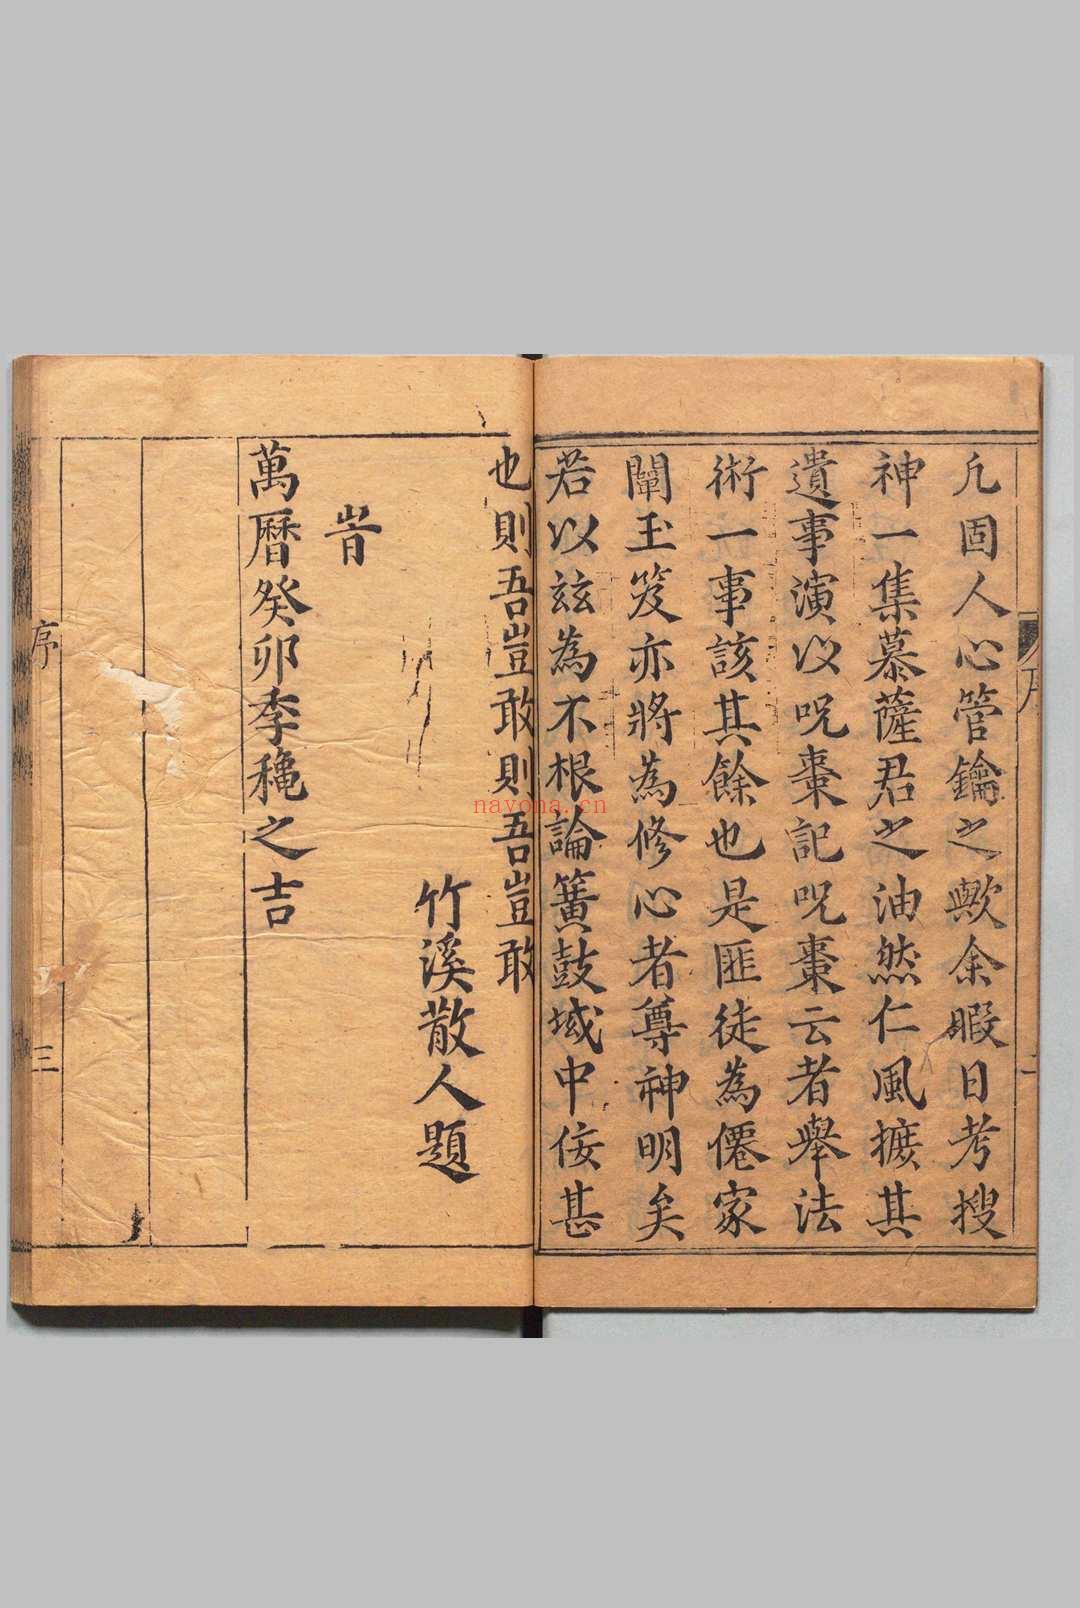 凡固人心管鑰之歟余暇日考搜
神一集慕薩君之油然仁風擴其
遺事演以呪棗記呪棗云者舉法
術一事該其餘也是匪徒為僊家
闡玉笈亦將為修心者尊神明矣
若以兹為不根論簧鼓域中侫甚
也則吾豈敢則吾豈敢
竹溪散人題
旹
萬曆癸卯季龝之吉
序
三
nayona.cn